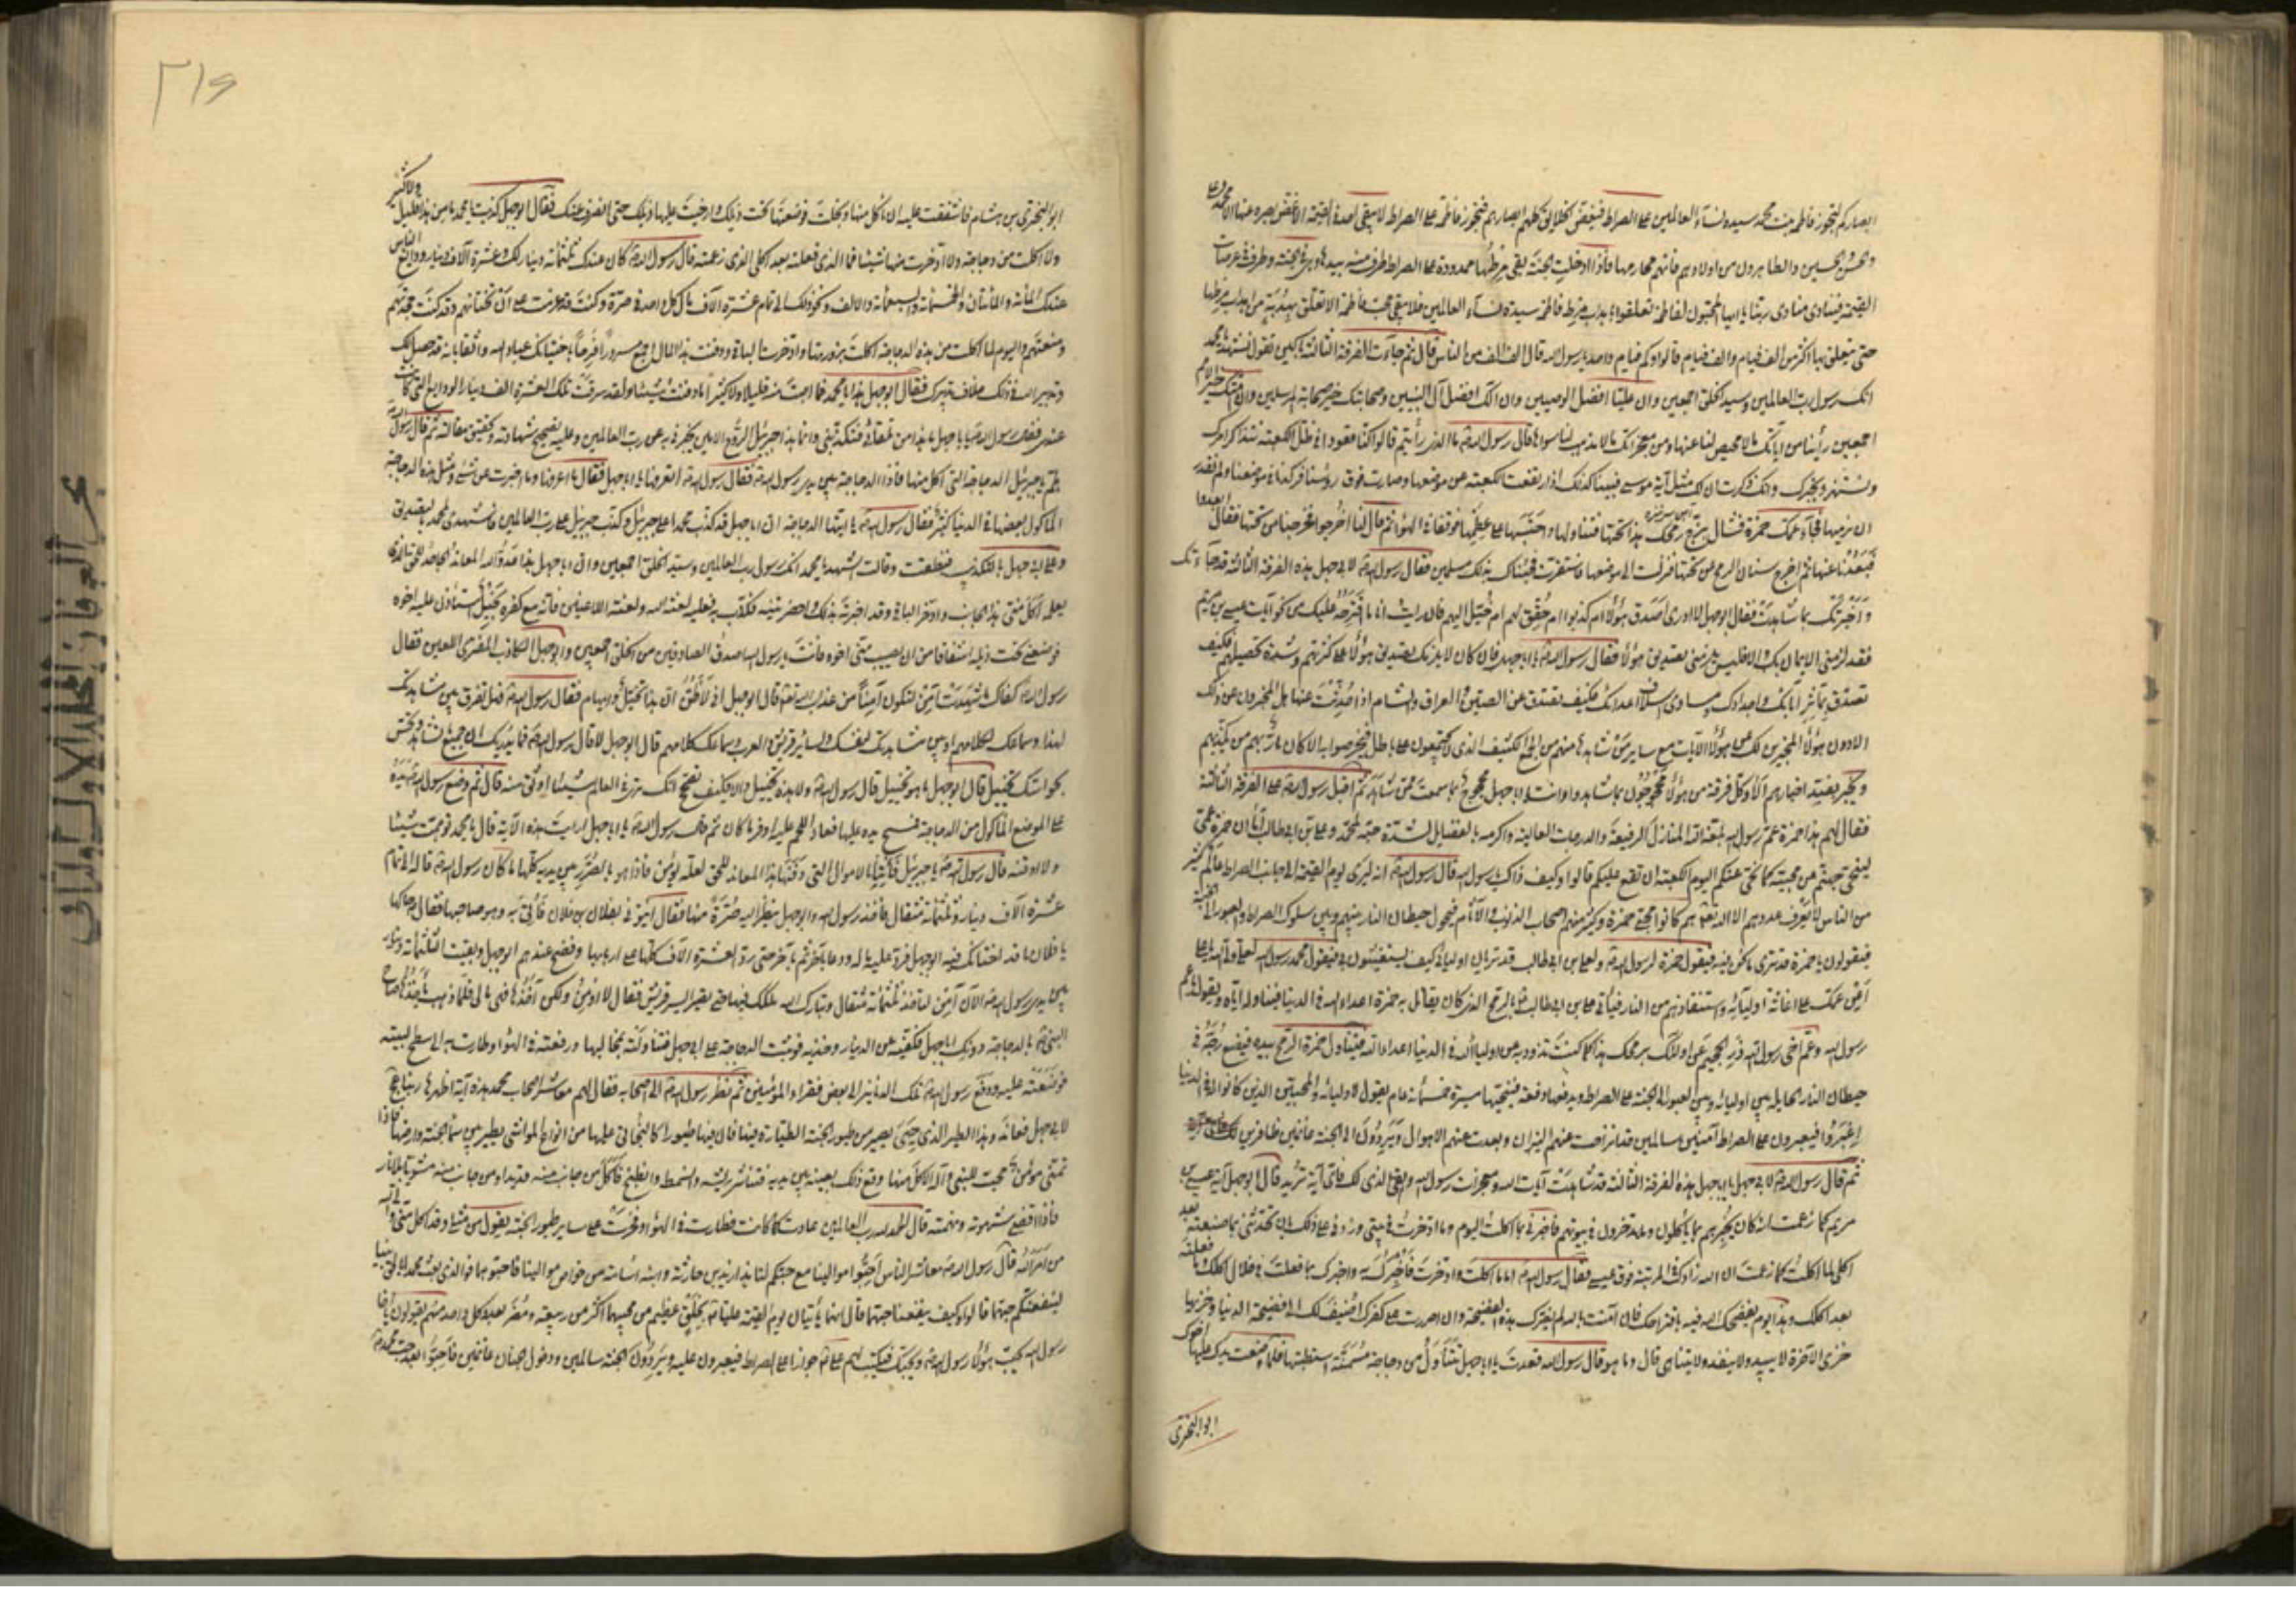 ابصاركم لتجوز فاطمة بنت محمد سيدة نساء العالمين على الصراط فيغض الخلائق كلهم ابصارهم فتجوز فاطمة على الصراط لا يبقى احد في القيمة الا غض بصره عنها الا محمد وعلي
والحسن والحسين والطاهرون من اولادهم فانهم محارمها فاذا دخلت الجنة بقى مرطها ممدودة على الصراط طرف منه بيدها وهي في الجنة وطرف في عرصات
القيمة فينادى منادى ربنا يا ايها المحبون لفاطمة تعلقوا باهداب مرط فاطمة سيدة نساء العالمين فلا يبقى محب فاطمة الا تعلق بهدبة من اهداب مرطها
حتى يتعلق بها اكثر من الف فيام والف فيام قالوا وكم فيام واحد يا رسول الله قال الف الف من الناس قال ثم جاءت الفرقة الثالثة باكين تقول نشهد يا محمد
انك رسول رب العالمين وسيد الخلق اجمعين وان عليا افضل الوصيين وان آلك افضل آل النبيين وصحابتك خير صحابة المرسلين وان امتك خير الامم
اجمعين رأينا من آياتك ما لا محيص لنا عنها ومن معجزاتك ما لا مذهب لنا سواها قال رسول الله ما الذى رأيتم قالوا كنا قعودا فى ظل الكعبة نتذاكر امرك
ونستهزء بخبرك وانك ذكرت ان لك مثل آية موسى فبينا نحن كذلك اذ ارتفعت الكعبة عن موضعها وصارت فوق رؤسنا فركدنا فى موضعنا ولم نقدر
ان نريمها فجاء عمك حمزة فقال بزج رمحه هذا تحتها فتناولها واحتبسها على عظمها فوقنا فى الهواء ثم قال لنا اخرجوا فخرجنا من تحتها فقال ابعدوا
فبعدنا عنها ثم اخرج سنان الرمح من تحتها فنزلت الى موضعها فاستقرت فجئناك بذلك مسلمين فقال رسول الله لابى جهل هذه الفرقة الثالثة قد جاءتك
واخبرتك بما شاهدت فقال ابو جهل لا ادرى اصدق هؤلاء ام كذبوا ام حقق لهم ام خيل اليهم فان رايت انا ما اقترحه عليك من نحو آيات عيسى بن مريم
فقد لزمنى الايمان بك والا فليس يلزمنى تصديق هؤلاء فقال رسول الله يا ابا جهل فان كان لا يلزمك تصديق هؤلاء على كثرتهم وشدة تحصيلهم فكيف
تصدق بمآثر آبائك واجدادك ومساوى اسلاف اعدائك وكيف تصدق عن الصين والعراق والشام اذا حدثت عنها هل المخبرون عن ذلك
الا دون هؤلاء المخبرين لك عن هؤلاء الآيات مع ساير من شاهدها منهم من الجمع الكثيف الذى لا يجتمعون على باطل يتخرصونه الا كان بازائهم من يكذبهم
ويخبر بضد اخبارهم الا وكل فرقة من هؤلاء محجوجون بما شاهدوا وانت يا ابا جهل محجوج بما سمعت ممن شاهد ثم اقبل رسول الله على الفرقة الثالثة
فقال لهم هذا حمزة عم رسول الله بلغه الله المنازل الرفيعة والدرجات العالية واكرمه بالفضايل لشدة حبه لمحمد وعلى بن ابى طالب اما ان حمزة عم محمد
لينحى جهنم عن محبيه كما نحى عنكم اليوم الكعبة ان تقع عليكم قالوا وكيف ذاك يا رسول الله قال رسول الله انه ليرى يوم القيمة الى جانب الصراط عالم كثير
من الناس لا يعرف عددهم الا الله تعالى هم كانوا محبى حمزة وكثير منهم اصحاب الذنوب والآثام فتحول حيطان النار بينهم وبين سلوك الصراط والعبور الى الجنة
فيقولون يا حمزة قد ترى ما نحن فيه فيقول حمزة لرسول الله ولعلى بن ابى طالب قد تريان اوليائى كيف يستغيثون بى فيقول محمد رسول الله لعلى ولى الله يا على
اعن عمك على اغاثة اوليائه واستنقاذهم من النار فيأتى على بن ابى طالب بالرمح الذى كان يقاتل به حمزة اعداء الله فى الدنيا فيناوله اياه ويقول يا عم
رسول الله وعم اخى رسول الله ذر الجحيم عن اوليائك برمحك هذا كما كنت تذود به عن اولياء الله فى الدنيا اعداء الله فيتناول حمزة الرمح بيده فيضع زجه فى
حيطان النار الحايلة بين اوليائه وبين العبور الى الجنة على الصراط ويدفعها دفعة فينحيها مسيرة خمسمائة عام ثم يقول لاوليائه والمحبين الذين كانوا له فى الدنيا
اعبروا فيعبرون على الصراط آمنين سالمين قد انزاحت عنهم النيران وبعدت عنهم الاهوال ويردون الى الجنة غانمين ظافرين
ثم قال رسول الله لابى جهل يا ابا جهل هذه الفرقة الثالثة قد شاهدت آيات الله ومعجزات رسول الله وبقى الذى لك فاى آية تريد قال ابو جهل آية عيسى بن
مريم كما زعمت انه كان يخبرهم بما يأكلون وما يدخرون فى بيوتهم فاخبرنى بما اكلت اليوم وما ادخرت فى بيتى وزدنى على ذلك بان تحدثنى بما صنعته بعد
اكلى لما اكلت كما زعمت ان الله زادك فى المرتبة فوق عيسى فقال رسول الله اما ما اكلت وادخرت فاخبرك به واخبرك بما فعلت فى خلال اكلك وما فعلته
بعد اكلك وهذا يوم يفضحك الله فيه باقتراحك فان آمنت بالله لم تضرك هذه الفضيحة وان اصررت على كفرك اضيف لك الى فضيحة الدنيا وخزيها
خزى الآخرة لا يبيد ولا ينفد ولا يتناهى قال وما هو قال رسول الله قعدت يا ابا جهل تتناول من دجاجة مسمنة استطبتها فلما وضعت يدك عليها اخوك
ابو البخترى
٢١٤
ابو البخترى بن هشام فاشفقت عليه ان ياكل منها وبخلت فوضعتها تحت ذيلك وارخيت عليها ذيلك حتى انصرف عنك فقال ابو جهل كذبت يا محمد ما من هذا قليل ولا كثير
ولا اكلت من دجاجة ولا ادخرت منها شيئا فما الذى فعلته بعد اكلى الذى زعمته قال رسول الله كان عندك ثلثمائة دينار لك وعشرة آلاف دينار ودايع الناس
عندك المائة والمائتان والخمسمائة والسبعمائة والالف ونحو ذلك الى تمام عشرة آلاف مال كل واحد فى صرة وكنت قد عزمت على ان تختانهم وقد كنت جحدتهم
ومنعتهم واليوم لما اكلت من هذه الدجاجة اكلت زورتها وادخرت الباقى ودفنت هذا المال اجمع مسرورا فرحا باختيانك عباد الله واثقا بانه قد حصل لك
وتدبير الله فى ذلك خلاف تدبيرك فقال ابو جهل وهذا يا محمد فما اصبت منه قليلا ولا كثيرا ما دفنت شيئا ولقد سرقت تلك العشرة الف دينار الودايع التى كانت
عندى فقال رسول الله يا ابا جهل ما هذا من تلقائى فتكذبنى وانما هذا جبرئيل الروح الامين يخبرنى به عن رب العالمين وعليه تصحيح شهادته وتحقيق مقالته ثم قال رسول الله
هلم يا جبرئيل الدجاجة التى اكل منها فاذا الدجاجة بين يدى رسول الله فقال رسول الله اتعرفها يا ابا جهل فقال ما اعرفها وما اخبرت عن شىء ومثل هذه الدجاجة
المأكول بعضها فى الدنيا كثير فقال رسول الله يا ايتها الدجاجة ان ابا جهل قد كذب محمدا على جبرئيل وكذب جبرئيل على رب العالمين فاشهدى لمحمد بالتصديق
وعلى ابى جهل بالتكذيب فنطقت وقالت اشهد يا محمد انك رسول رب العالمين وسيد الخلق اجمعين وان ابا جهل هذا عدو الله المعاند الجاحد للحق الذى
يعلمه اكل منى هذا الجانب وادخر الباقى وقد اخبرته بذلك واحضرتنيه فكذب به فعليه لعنة الله ولعنة اللاعنين فانه مع كفره بخيل استأذن عليه اخوه
فوضعنى تحت ذيله اشفاقا من ان يصيب منى اخوه فانت يا رسول الله اصدق الصادقين من الخلق اجمعين وابو جهل الكاذب المفترى اللعين فقال
رسول الله اما كفاك ما شهدت آمن لتكون آمنا من عذاب الله تعالى قال ابو جهل انى لأظن ان هذا تخييل وايهام فقال رسول الله فهل تفرق بين مشاهدتك
لهذا وسماعك لكلامها وبين مشاهدتك لنفسك ولسائر قريش والعرب وسماعك كلامهم قال ابو جهل لا قال رسول الله فما يدريك ان جميع ما تشاهد وتحس
بحواسك تخييل قال ابو جهل ما هو تخييل قال رسول الله ولا هذه تخييل والا فكيف تصحح انك ترى فى العالم شيئا اوثق منه قال ثم وضع رسول الله يده
على الموضع المأكول من الدجاجة فمسح يده عليها فعاد اللحم عليه اوفر ما كان ثم قال رسول الله يا ابا جهل ارأيت هذه الآية قال يا محمد توهمت شيئا
ولا اوقنه قال رسول الله يا جبرئيل فأتنا بالاموال التى دفنها هذا المعاند للحق لعله يؤمن فاذا هو بالصرر بين يديه كلها ما كان رسول الله قاله الى تمام
عشرة آلاف دينار وثلثمائة مثقال فاخذ رسول الله وابو جهل ينظر اليه صرة منها فقال ائتونى بفلان بن فلان فأتى به وهو صاحبها فقال هاكها
يا فلان ما قد اختانك فيه ابو جهل فرد عليه ماله ودعا بآخر ثم بآخر حتى رد العشرة الآلاف كلها على اربابها وفضح عندهم ابو جهل وبقيت الثلثمائة دينار
بين يدى رسول الله فقال الآن آمن لتأخذ الثلثمائة مثقال ويبارك الله لك فيها حتى تصير ايسر قريش فقال لا اومن ولكن آخذها فهى مالى فلما ذهب يأخذها صاح
النبى بالدجاجة دونك ابا جهل فكفيه عن الدينار وخذيه فوثبت الدجاجة على ابى جهل فتناولته بمخاليبها ورفعته فى الهواء وطارت به الى سطح لبيته
فوضعته عليه ودفع رسول الله تلك الدنانير الى بعض فقراء المؤمنين ثم نظر رسول الله الى اصحابه فقال لهم معاشر اصحاب محمد هذه آية اظهرها ربنا عز وجل
لابى جهل فعاند وهذا الطير الذى حيى يصير من طيور الجنة الطيارة فيها فان فيها طيورا كالبخاتى عليها من انواع المواشى تطير بين سماء الجنة وارضها فاذا
تمنى مؤمن محب للنبى وآله الاكل منها وقع ذلك بعينه بين يديه فتناثر ريشه وانسمط وانطبخ فاكل من جانب منه قديدا ومن جانب منه مشويا بلا نار
فاذا قضى شهوته ونهمته قال الحمد لله رب العالمين عادت كما كانت فطارت فى الهواء وفخرت على ساير طيور الجنة يقول من مثلى وقد اكل منى ولى الله
من امر الله قال رسول الله معاشر الناس احبوا موالينا مع حبكم لنا هذا زيد بن حارثة وابنه اسامة من خواص موالينا فاحبوهما فوالذى بعث محمدا بالحق نبيا
لينفعنكم حبهما قالوا وكيف ينفعنا حبهما قال انهما يأتيان يوم القيمة عليا بخلق عظيم من محبيهما اكثر من ربيعة ومضر بعدد كل واحد منهم فيقولون يا اخا
رسول الله نحب هؤلاء رسول الله وبحبك فيكتب لهم على جوازا على الصراط فيعبرون عليه ويردون الجنة سالمين ودخول الجنان غانمين